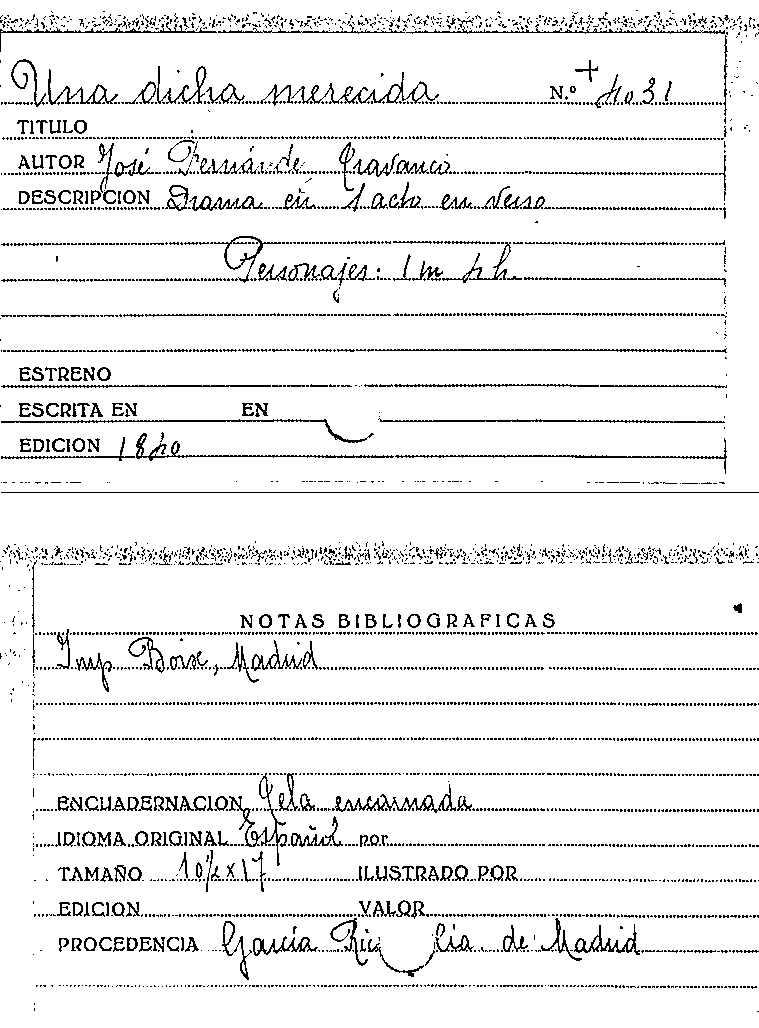 Una dicha merecida N.º + 4031
TITULO
AUTOR José Fernánde Travanco
DESCRIPCION Drama en 1 acto en verso
Personajes: 1 m 4 h.
ESTRENO
ESCRITA EN EN
EDICION 1840
NOTAS BIBLIOGRAFICAS
Imp Boix, Madrid
ENCUADERNACION Tela encarnada
IDIOMA ORIGINAL Español por
TAMAÑO 10½ x 17 ILUSTRADO POR
EDICION VALOR
PROCEDENCIA García Ric Cía. de Madrid